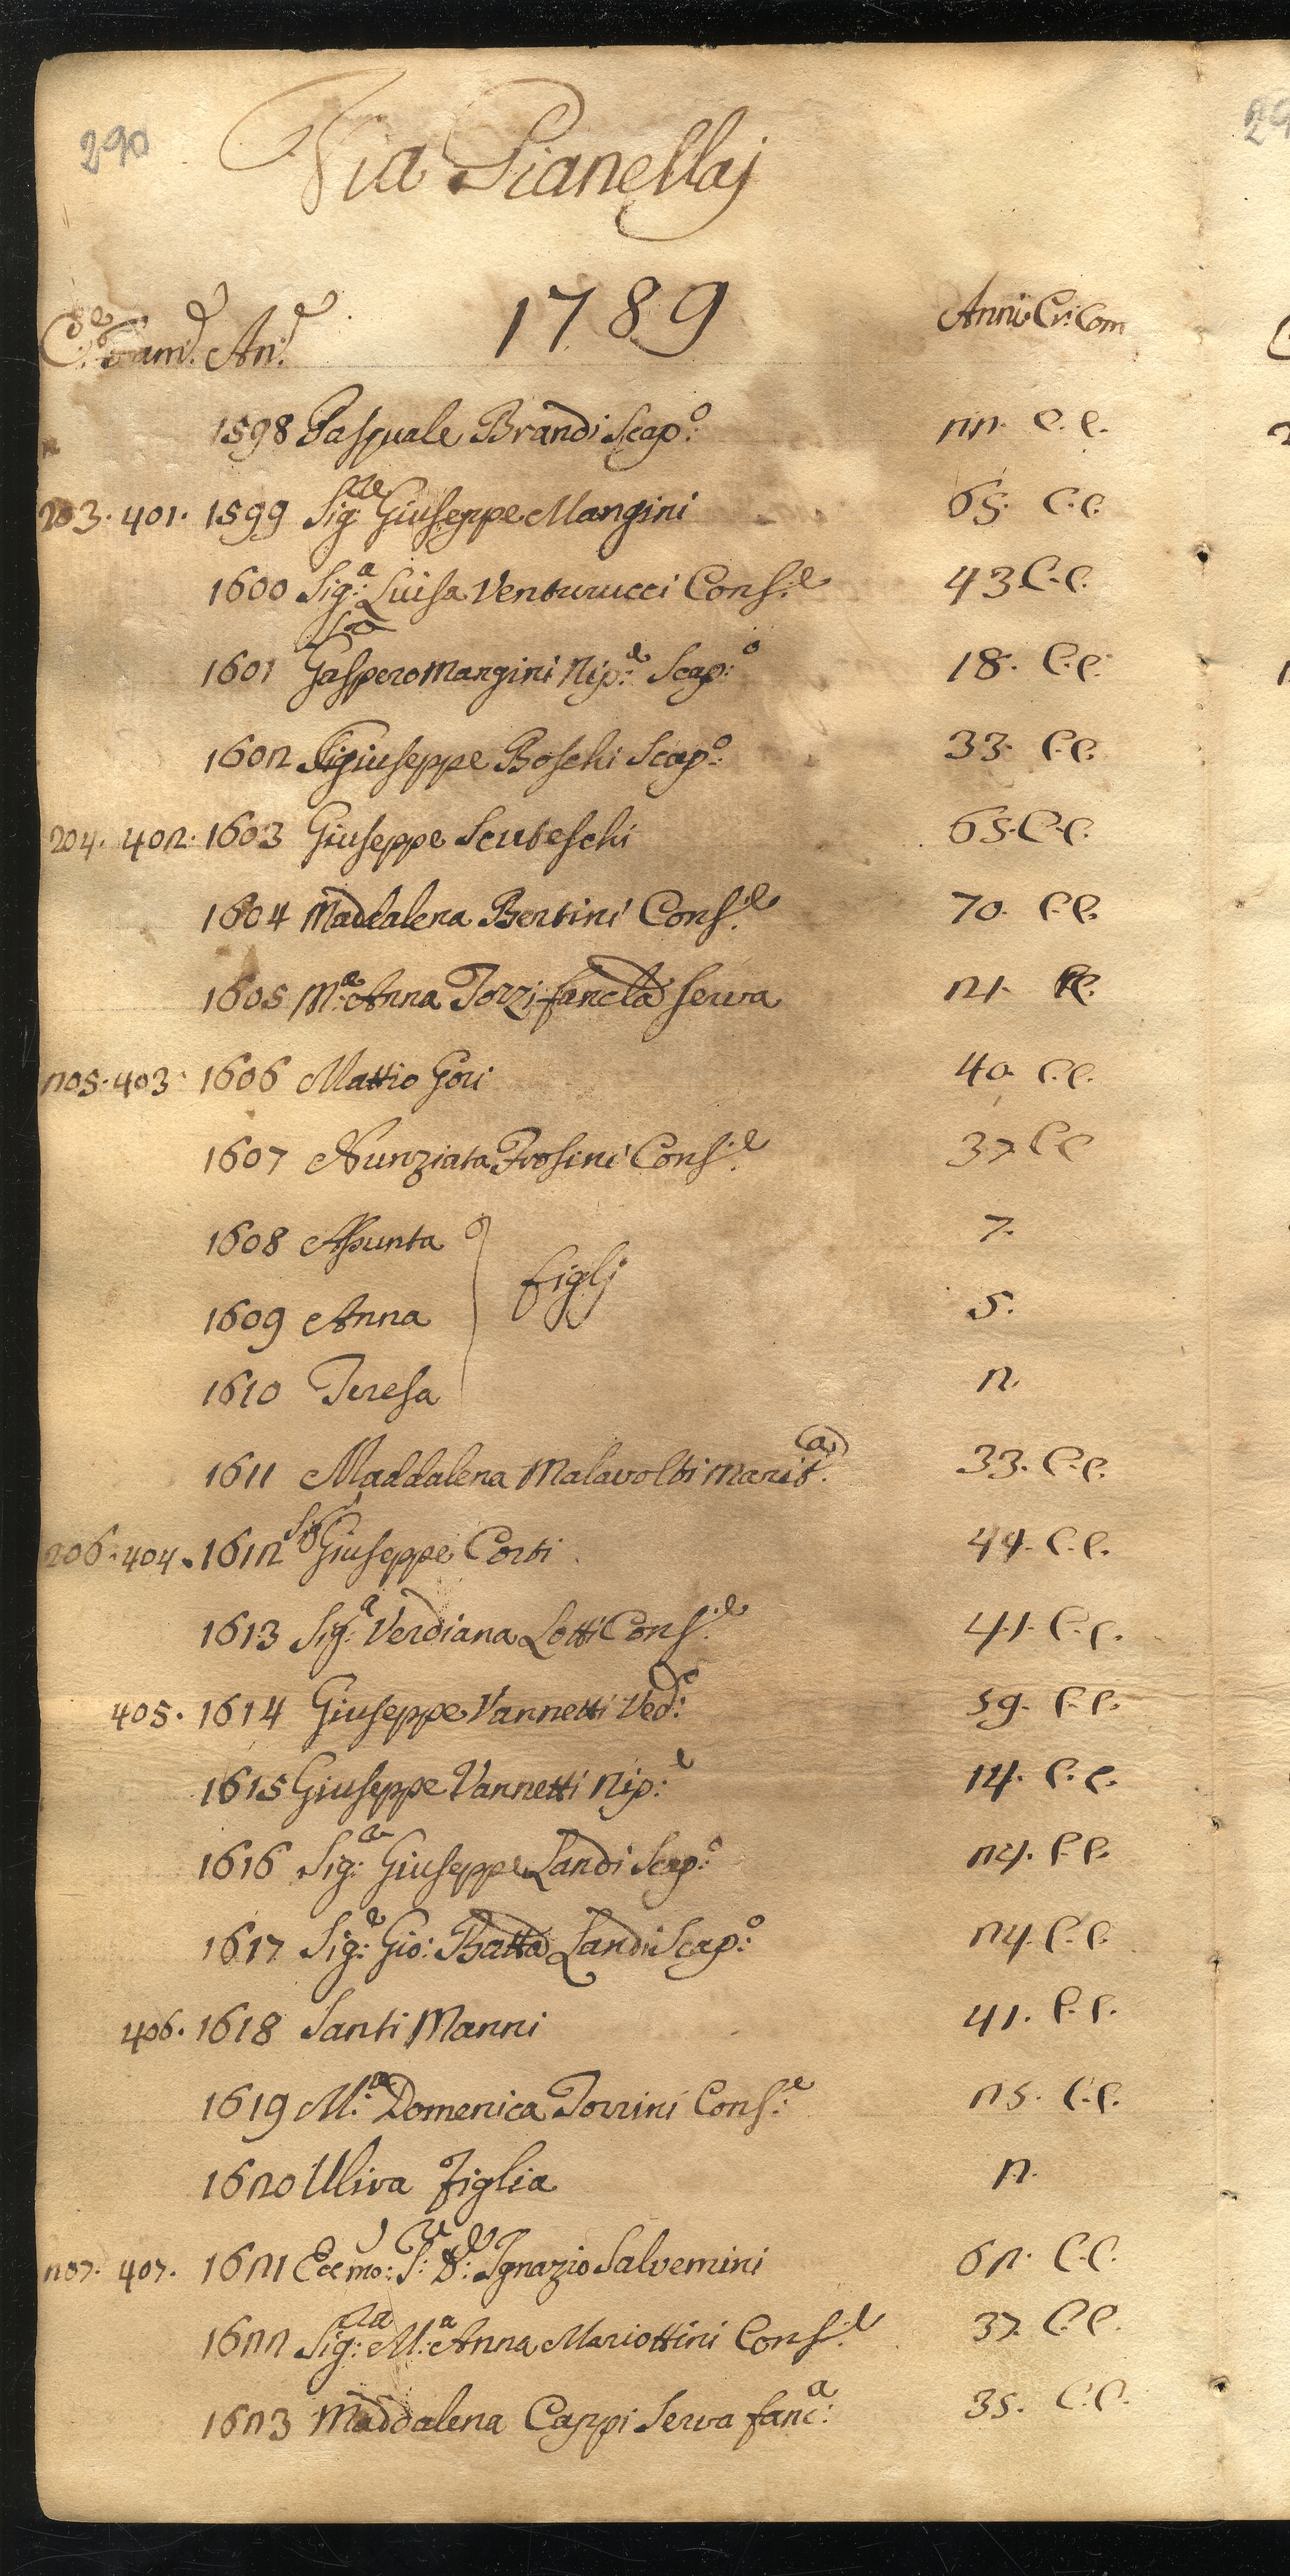 290
Via Pianellaj
1789
C.e Fam.e An.e Anni Cr: Com
1598 Pasquale Brandi Scap:o 22. C. C.
203. 401. 1599 Sig:re Giuseppe Mangini 65. C.C.
1600 Sig:a Luisa Venturucci Cons:e 43 C.C.
1601 Gaspero Mangini Nip:e Scap:o 18. C.C.
1602 Giuseppe Boschi Scap:o 33. C.C.
204. 402. 1603 Giuseppe Scuteschi 65. C.C.
1604 Maddalena Bertini Cons:e 70. C.C.
1605 M:a Anna Torzi fancla serva 21. C.
205. 403. 1606 Mattio Gori 40 C.C.
1607 Nunziata Frosini Cons:e 37 C.C
1608 Assunta 7.
figlj
1609 Anna 5.
1610 Teresa 2.
1611 Maddalena Malavolti Marit:a 33. C.C.
206. 404. 1612 Sig Giuseppe Corti 44. C.C.
1613 Sig:a Verdiana Lotti Cons:e 41. C.C.
405. 1614 Giuseppe Vannetti Ved:o 59. C.C.
1615 Giuseppe Vannetti Nip:e 14. C.C.
1616 Sig:e Giuseppe Landi Scap:o 24. C.C.
1617 Sig:e Gio: Batta Landi Scap:o 24. C.C.
406. 1618 Santi Manni 41. C.C.
1619 M:a Domenica Torrini Cons:e 25. C.C.
1620 Uliva Figlia 2.
207. 407. 1621 Ecc mo: S:re D: Ignazio Salvemini 62. C.C.
1622 Sig:ra M:a Anna Mariottini Cons:e 37. C.C.
1623 Maddalena Cappi Serva fanc:a 35. C.C.